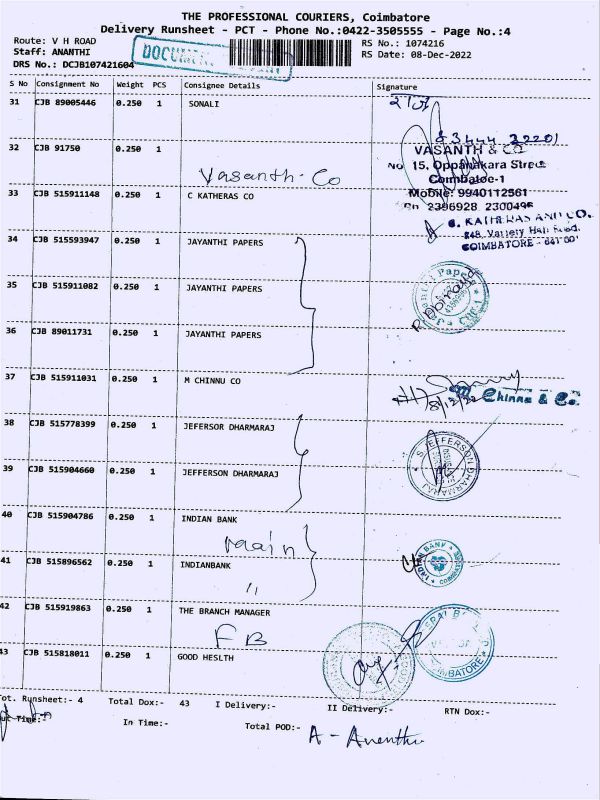 THE PROFESSIONAL COURIERS, Coimbatore
Delivery Runsheet - PCT - Phone No.:0422-3505555 - Page No.:4
Route: V H ROAD
Staff: ANANTHI
DRS No.: DCJB107421604
RS No.: 1074216
RS Date: 08-Dec-2022
S No Consignment No Weight PCS Consignee Details Signature
31 CJB 89005446 0.250 1 SONALI
32 CJB 91750 0.250 1
Vasanth-Co
VASANTH & CO
No 15, Oppanakara Street
Coimbatoe-1
Mobile: 9940112561
Pn 2396928 2300496
33 CJB 515911148 0.250 1 C KATHERAS CO
COIMBATORE - 641 001
34 CJB 515593947 0.250 1 JAYANTHI PAPERS
35 CJB 515911082 0.250 1 JAYANTHI PAPERS
36 CJB 89011731 0.250 1 JAYANTHI PAPERS
37 CJB 515911031 0.250 1 M CHINNU CO
8/12/22
M. Chinna & Co.
38 CJB 515778399 0.250 1 JEFERSOR DHARMARAJ
S. JEFFERSON DHARMARAJ
39 CJB 515904660 0.250 1 JEFFERSON DHARMARAJ
40 CJB 515904786 0.250 1 INDIAN BANK
main
INDIAN BANK
41 CJB 515896562 0.250 1 INDIANBANK
"
42 CJB 515919863 0.250 1 THE BRANCH MANAGER
FB
43 CJB 515818011 0.250 1 GOOD HESLTH
Tot. Runsheet:- 4 Total Dox:- 43 I Delivery:- II Delivery:- RTN Dox:-
Out Time:- In Time:- Total POD:-
A - Ananthi